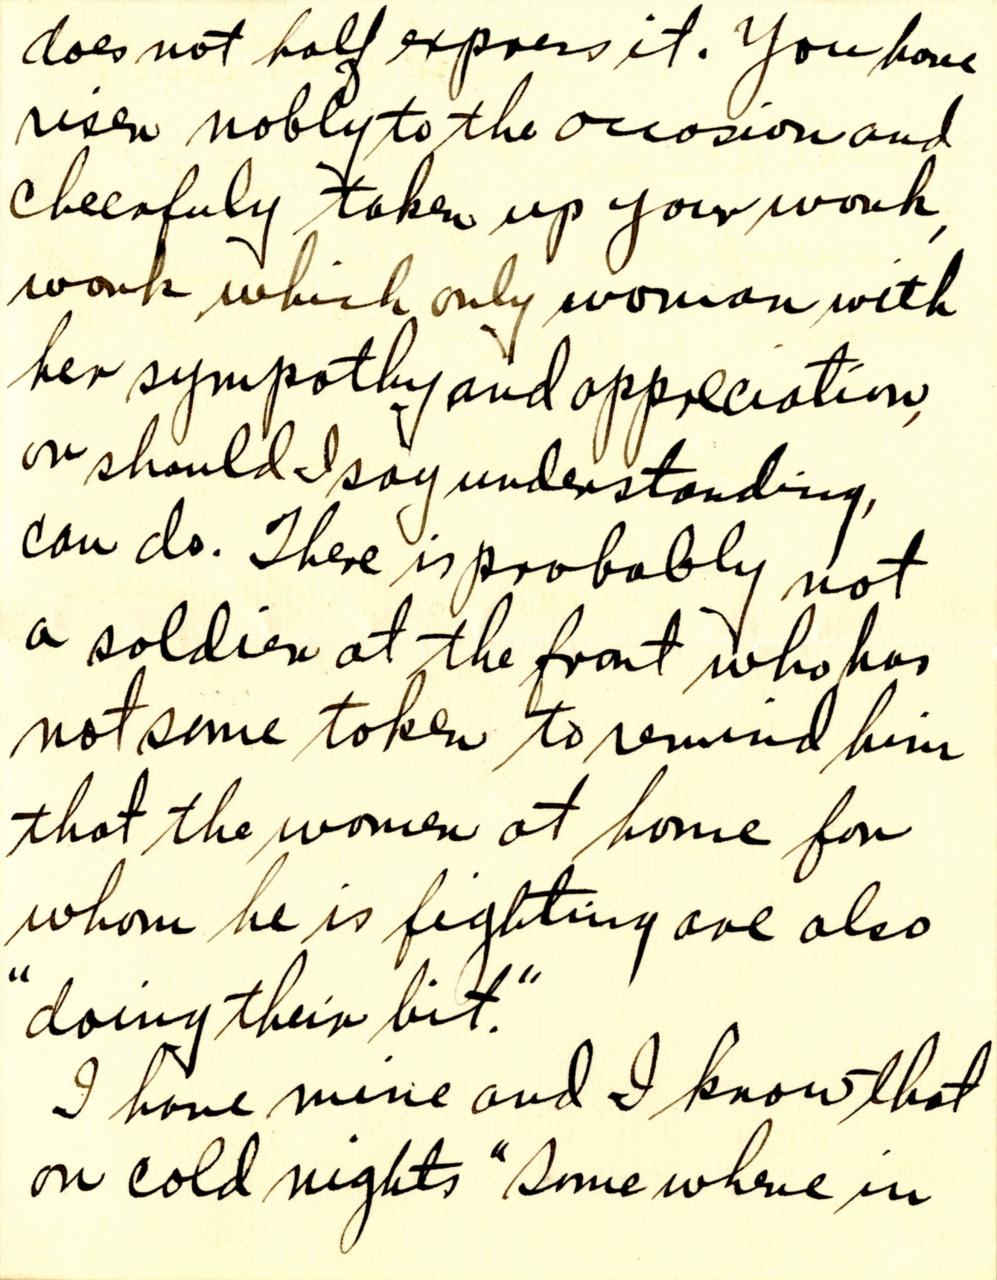 does not half express it. You have
risen nobly to the occasion and
cheerfuly taken up your work,
work which only woman with
her sympathy and appreciation,
or should I say understanding,
can do. There is probably not
a soldier at the front who has
not some token to remind him
that the women at home for
whom he is fighting are also
"doing their bit."
I have mine and I know that
on cold nights "Somewhere in